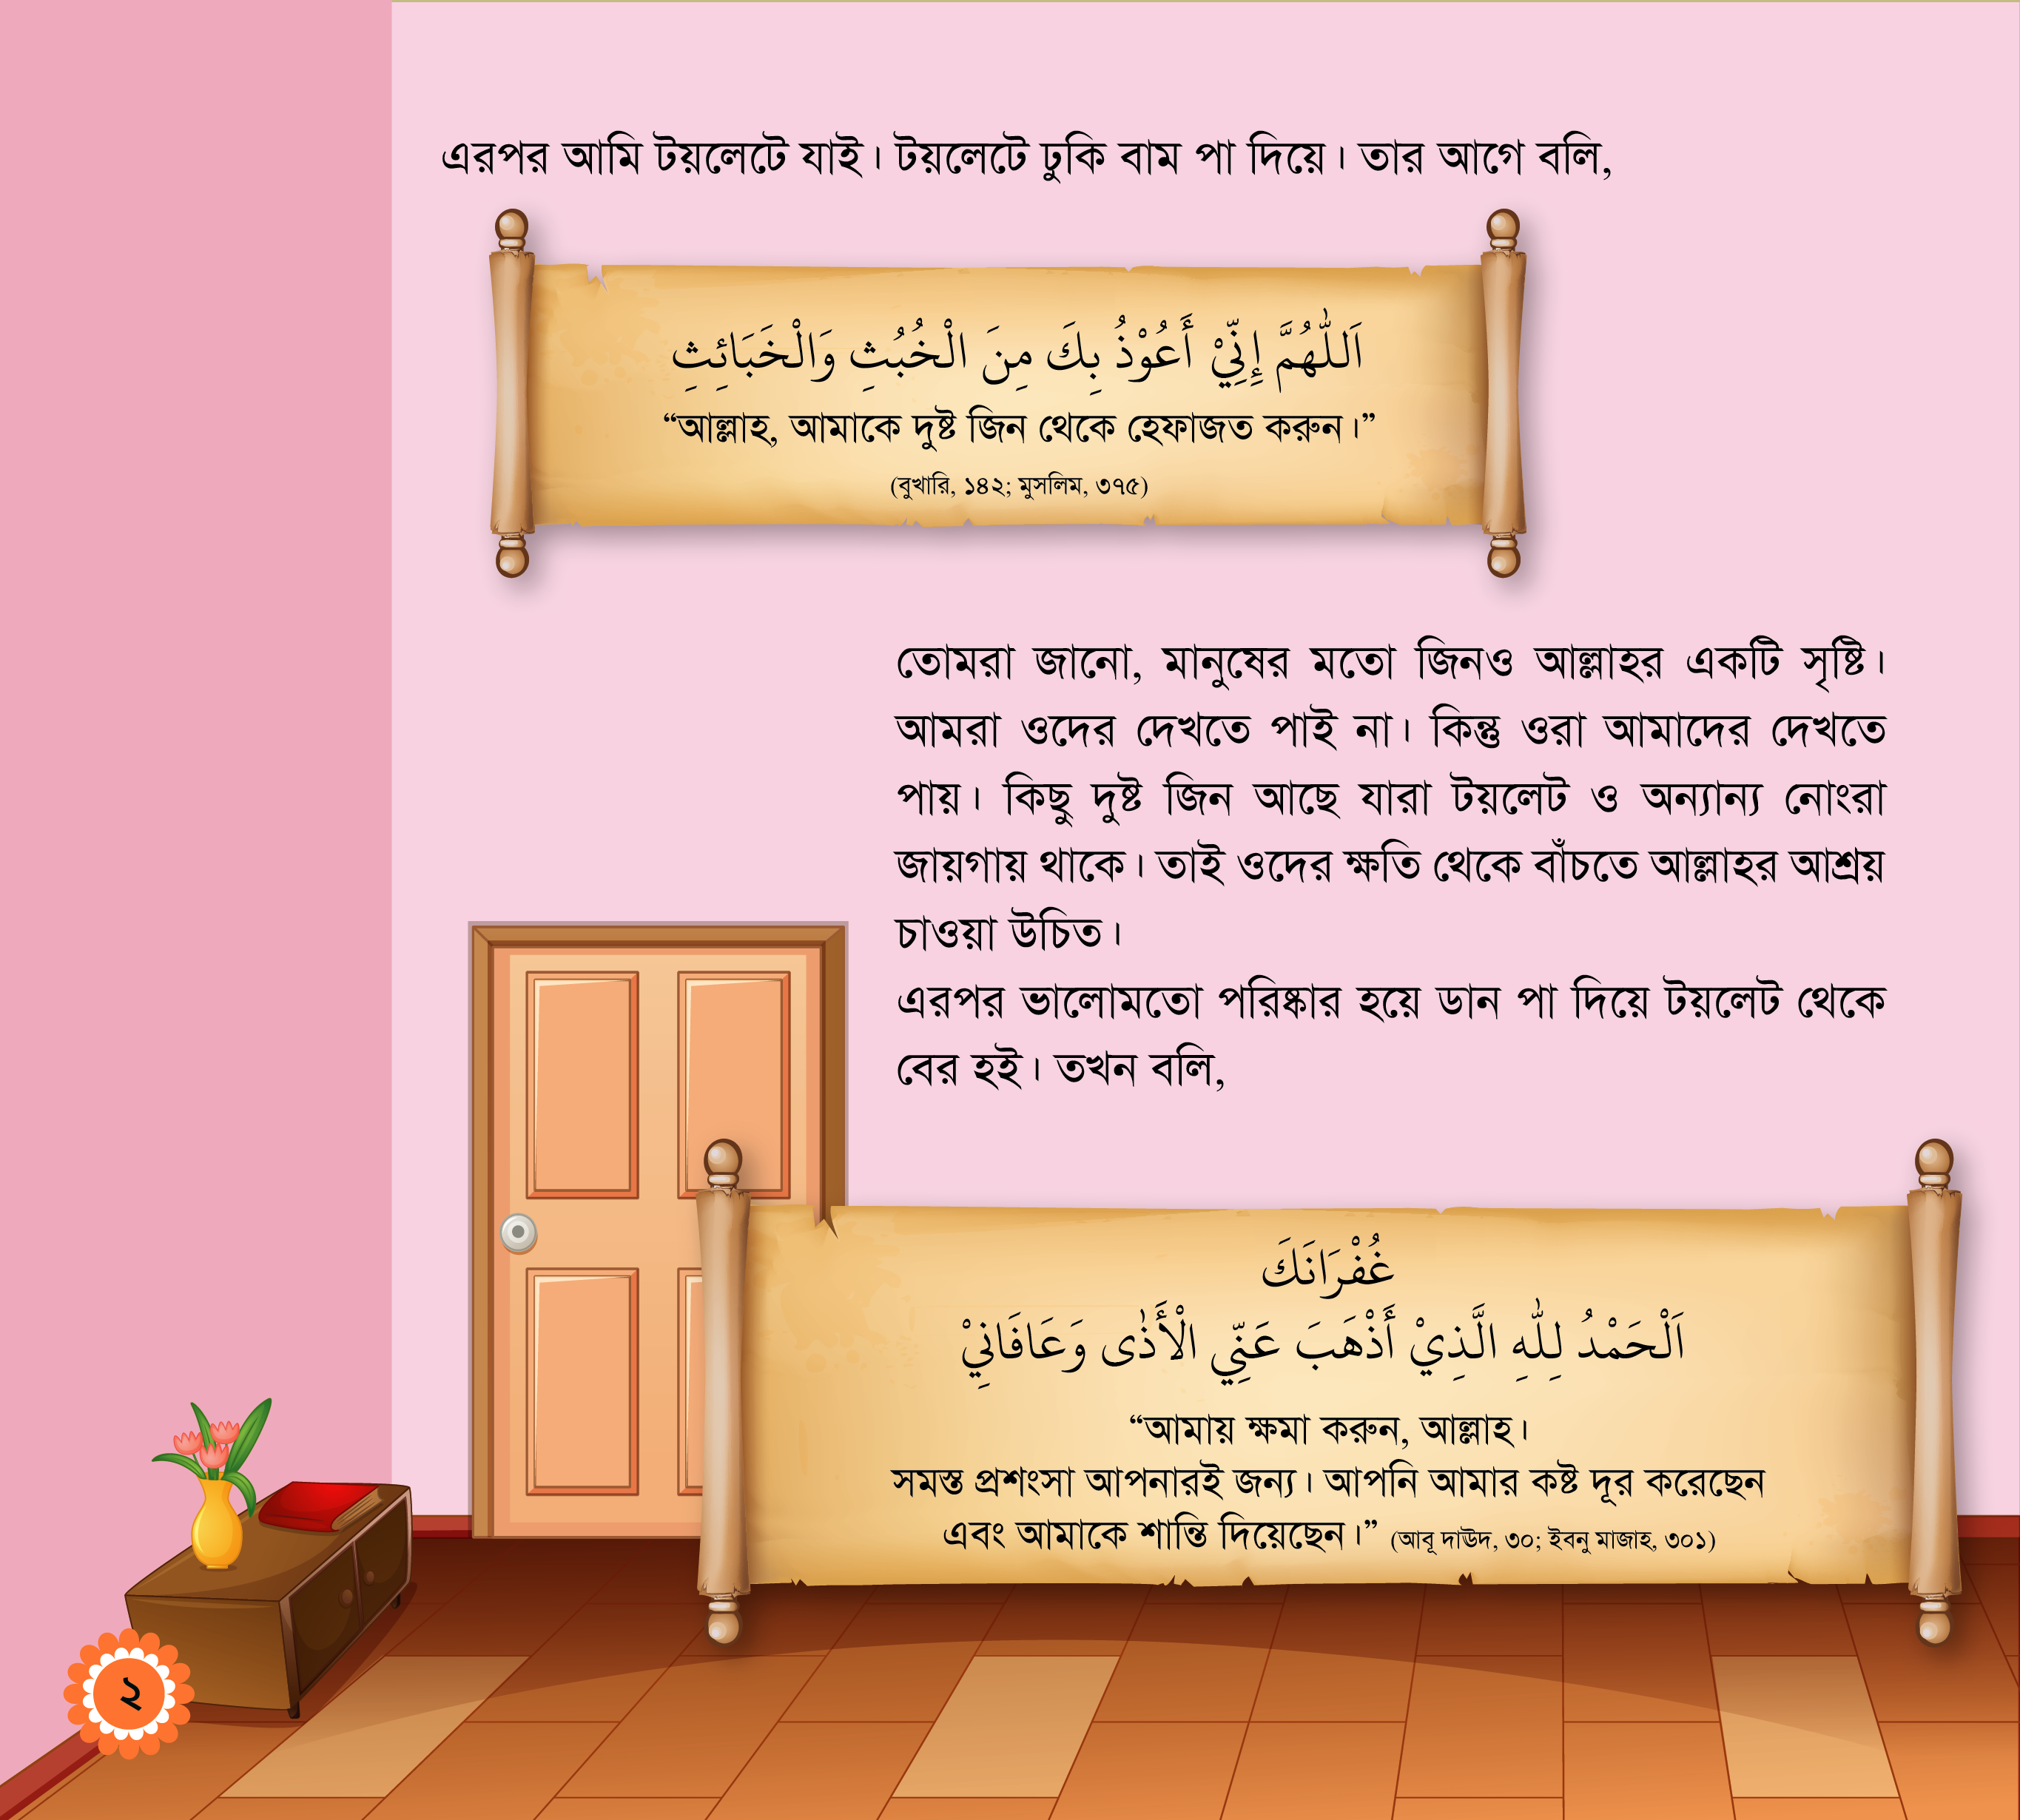 এরপর আমি টয়লেটে যাই। টয়লেটে ঢুকি বাম পা দিয়ে। তার আগে বলি,
اَللّٰهُمَّ إِنِّيْ أَعُوْذُ بِكَ مِنَ الْخُبُثِ وَالْخَبَائِثِ
“আল্লাহ, আমাকে দুষ্ট জিন থেকে হেফাজত করুন।”
(বুখারি, ১৪২; মুসলিম, ৩৭৫)
তোমরা জানো, মানুষের মতো জিনও আল্লাহর একটি সৃষ্টি।
আমরা ওদের দেখতে পাই না। কিন্তু ওরা আমাদের দেখতে
পায়। কিছু দুষ্ট জিন আছে যারা টয়লেট ও অন্যান্য নোংরা
জায়গায় থাকে। তাই ওদের ক্ষতি থেকে বাঁচতে আল্লাহর আশ্রয়
চাওয়া উচিত।
এরপর ভালোমতো পরিষ্কার হয়ে ডান পা দিয়ে টয়লেট থেকে
বের হই। তখন বলি,
غُفْرَانَكَ
اَلْحَمْدُ لِلّٰهِ الَّذِيْ أَذْهَبَ عَنِّي الْأَذٰى وَعَافَانِيْ
“আমায় ক্ষমা করুন, আল্লাহ।
সমস্ত প্রশংসা আপনারই জন্য। আপনি আমার কষ্ট দূর করেছেন
এবং আমাকে শান্তি দিয়েছেন।” (আবূ দাঊদ, ৩০; ইবনু মাজাহ, ৩০১)
২